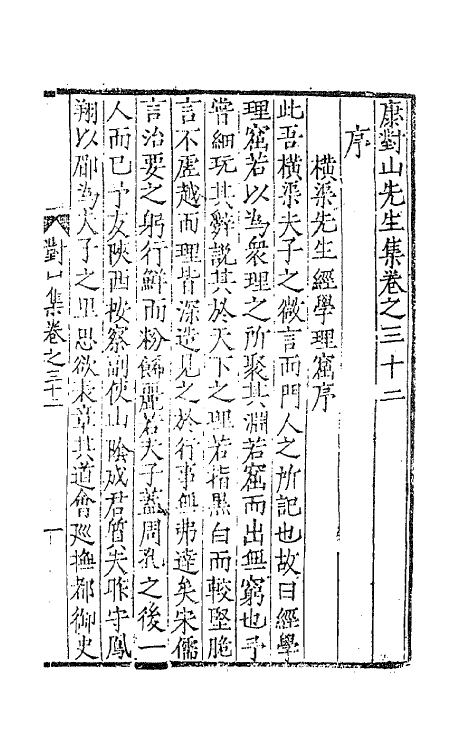 康對山先生集卷之三十二
序
橫渠先生經學理窟序
此吾橫渠夫子之微言而門人之所記也故曰經學
理窟若以為衆理之所聚其淵若窟而出無窮也予
嘗細玩其辭說其於天下之理若指黑白而較堅脆
言不虛越而理皆深造見之於行事無弗達矣宋儒
言治要之躬行鮮而粉飾麗若夫子蓋周孔之後一
人而已予友陝西按察副使山陰成君質夫昨守鳳
翔以郿為夫子之里思欲表章其道會巡撫都御史
對山集卷之三十二
一